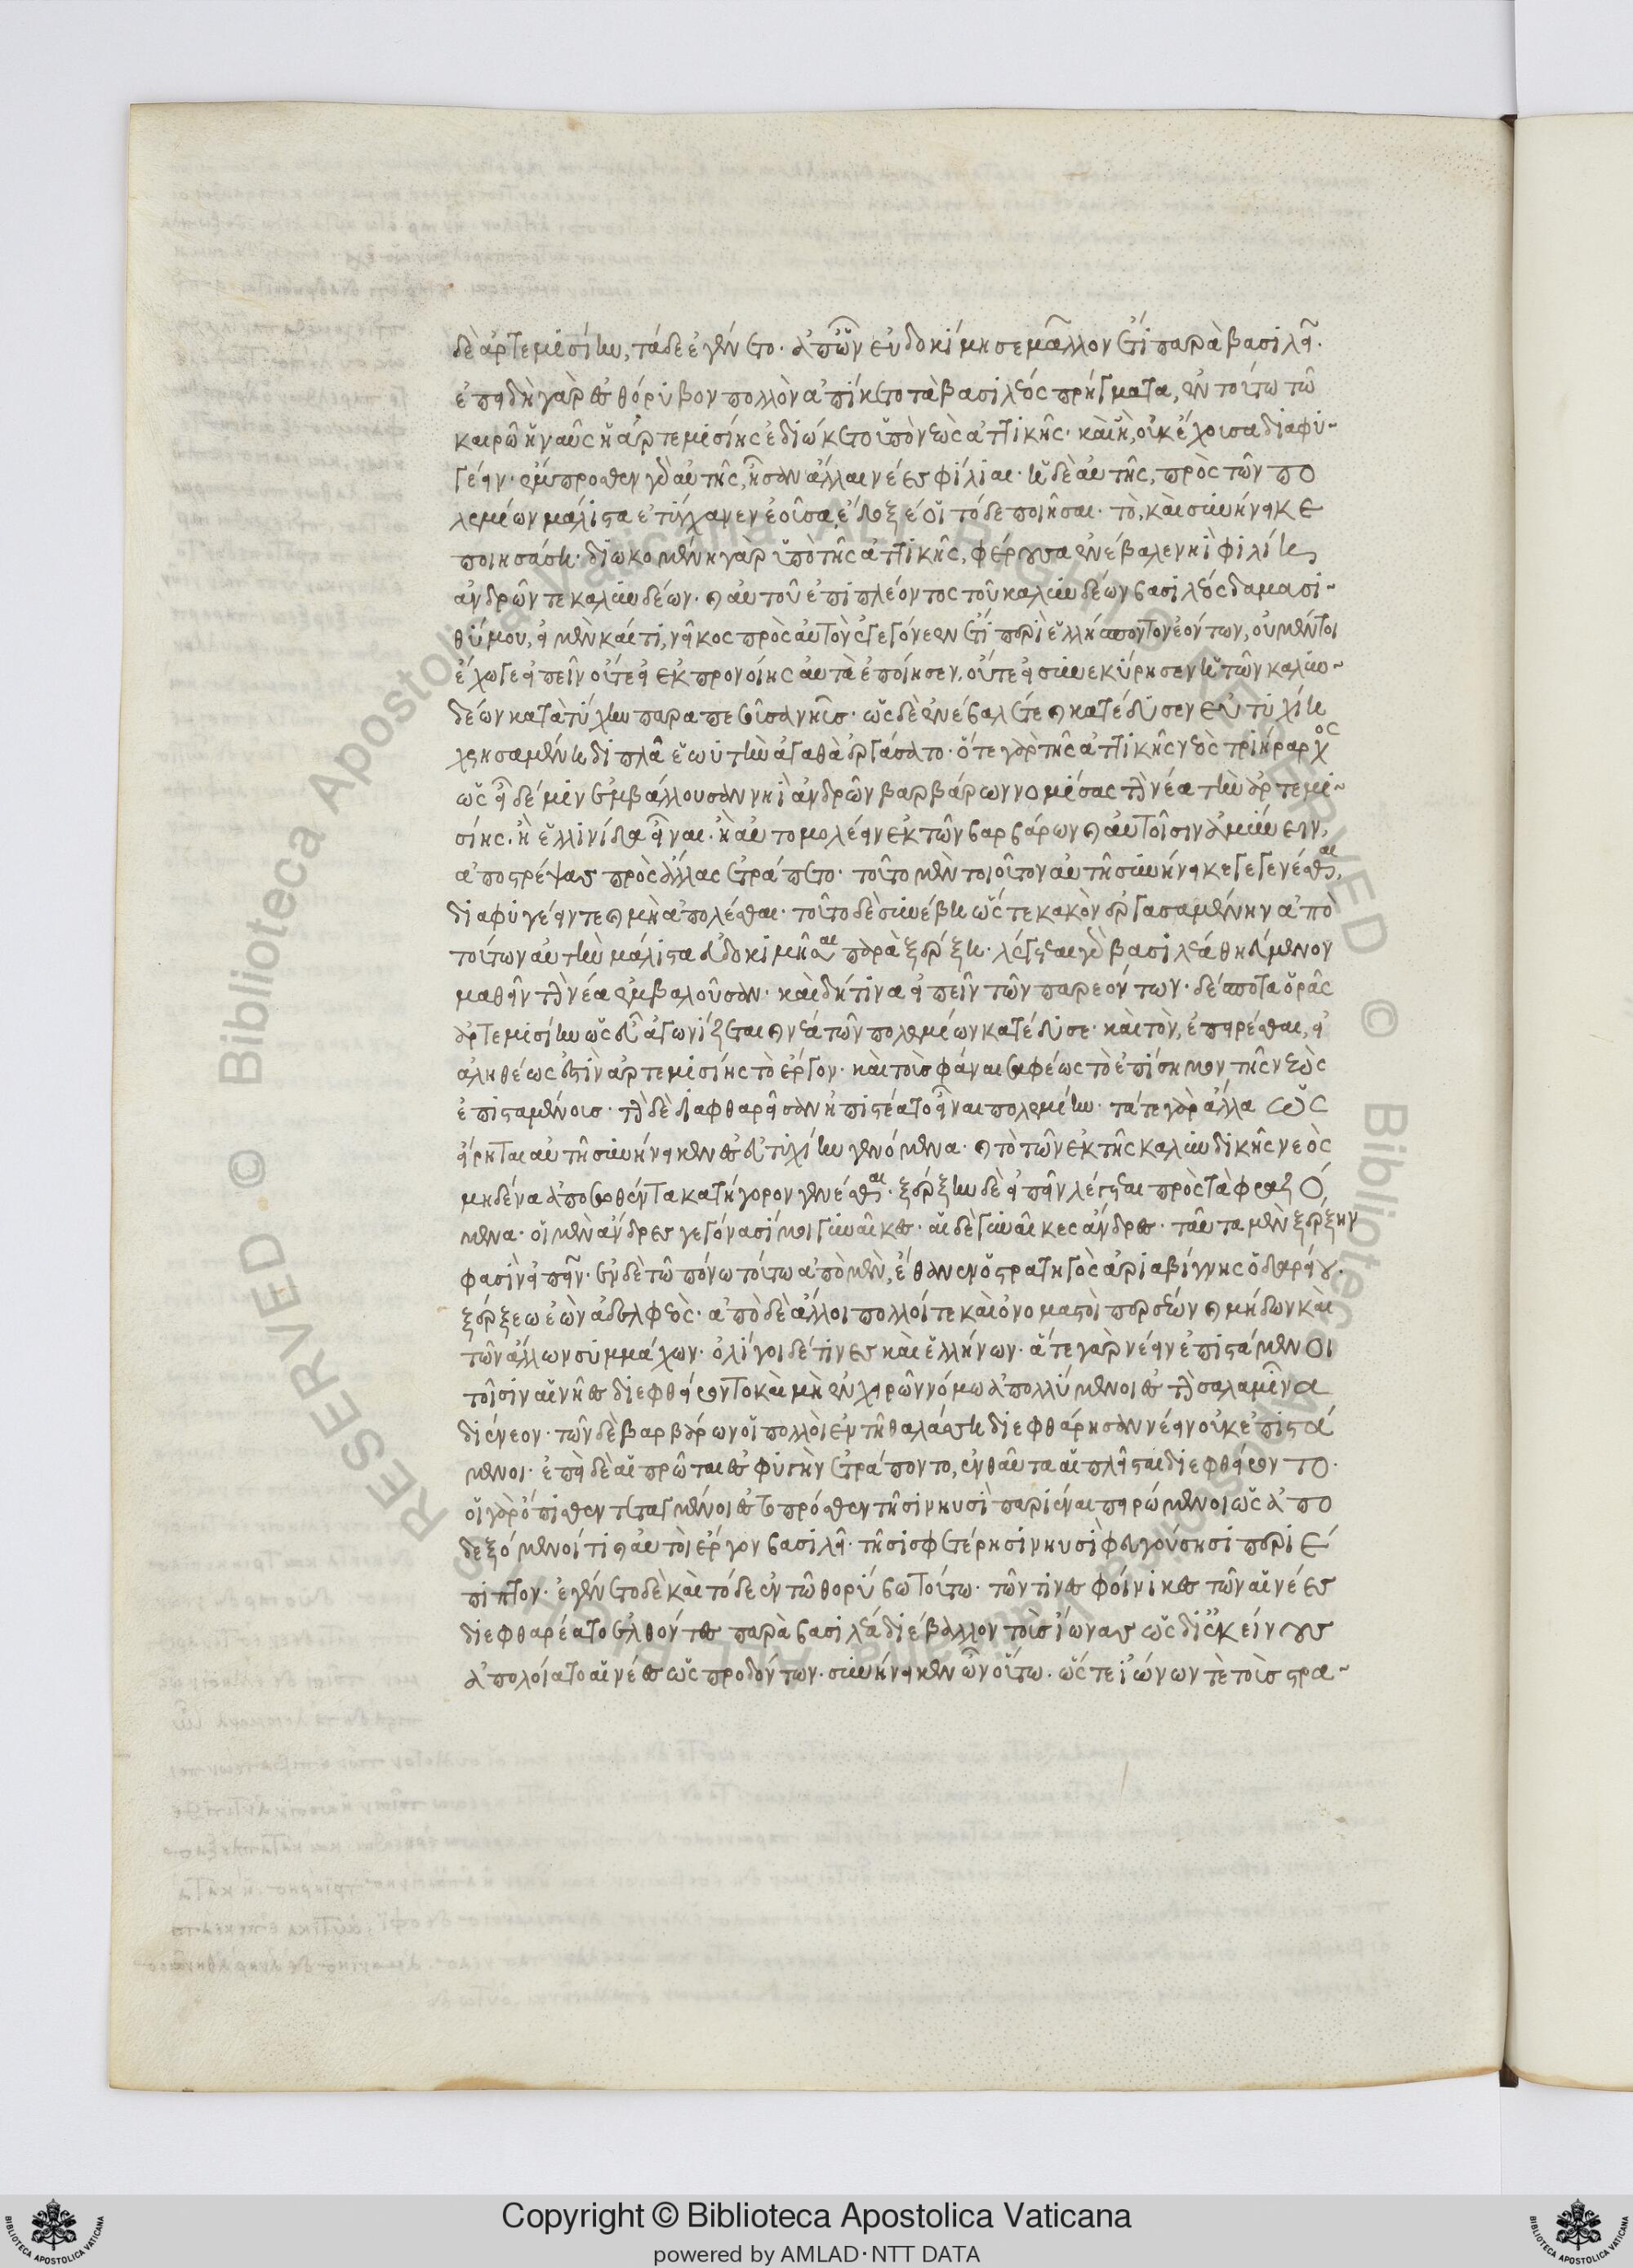 δὲ ἀρτεμισίην, τάδε ἐγένετο· ἀπ ὧν εὐδοκίμησε μᾶλλον ἔτι παρὰ βασιλεῖ.
ἐπειδὴ γὰρ ἐς θόρυβον πολλὸν ἀπίκετο τὰ βασιλέος πρήγματα, ἐν τούτω τῶ
καιρῶ ἡ ναῦς ἡ ἀρτεμισίης ἐδιώκετο ὑπὸ νεὸς ἀττικῆς· καὶ ἣ, οὐκ ἔχουσα διαφυ-
γέειν· ἔμπροσθεν γὰρ αὐτῆς, ἦσαν ἄλλαι νέες φίλιαι· ἡ δὲ αὐτῆς, πρὸς τῶν πο
λεμίων μάλιστα ἐτύγχανεν ἐοῦσα, ἔδοξέ οἱ τόδε ποιῆσαι· τὸ, καὶ συνήνεικε
ποιησάση· διωκομένη γὰρ ὑπὸ τῆς ἀττικῆς, φέρουσα ἐνέβαλε νηὶ φιλίη
ἀνδρῶν τε καλυνδέων· καὶ αὐτοῦ ἐπιπλέοντος τοῦ καλυνδέων βασιλέος δαμασι-
θύμου, εἰ μὲν καί τι, νεῖκος πρὸς αὐτὸν ἐγεγόνεεν ἔτι περὶ ἑλλήσποντον ἐόντων, οὐ μέντοι
ἔχωγε εἰπεῖν οὔτε εἰ ἐκ προνοίης αὐτὰ ἐποίησεν, οὔτε εἰ συνεκύρησεν ἡ τῶν καλυν-
δέων κατὰ τύχην παραπεσοῦσα νηῦς· ὡς δὲ ἐνέβαλέ τε καὶ κατέδυσεν εὐτυχίη
χρησαμένη διπλᾶ ἑωυτὴν ἀγαθὰ ἐργάσατο· ὅ τε γὰρ τῆς ἀττικῆς νεὸς τριήραρχος
ὡς εἶδέ μιν ἐμβάλλουσαν νηὶ ἀνδρῶν βαρβάρων νομίσας τὴν νέα τὴν ἀρτεμι-
σίης· ἢ ἑλληνίδα εἶναι· ἢ αὐτομολέειν ἐκ τῶν βαρβάρων καὶ αὐτοῖσιν ἀμύνειν,
ἀποστρέψας πρὸς ἄλλας ἐτράπετο· τοῦτο μὲν τοιοῦτον αὐτῆ συνήνεικε γεγενέσθαι,
διαφυγέειν τε καὶ μὴ ἀπολέσθαι· τοῦτο δὲ συνέβη ὥστε κακὸν ἐργασαμένην ἀπὸ
τούτων αὐτὴν μάλιστα εὐδοκιμῆσαι παρὰ ξέρξη· λέγεται γὰρ βασιλέα θηεύμενον
μαθεῖν τὴν νέα ἐμβαλοῦσαν· καὶ δή τινα εἰπεῖν τῶν παρεόντων· δέσποτα ὁρᾶς
ἀρτεμισίην ὡς εὖ ἀγωνίζεται καὶ νέα τῶν πολεμίων κατέδυσε· καὶ τὸν, ἐπειρέσθαι, εἰ
ἀληθέως ἐστὶν ἀρτεμισίης τὸ ἔργον· καὶ τοὺς φάναι σαφέως τὸ ἐπίσημον τῆς νεὸς
ἐπισταμένους· τὴν δὲ διαφθαρεῖσαν ἠπιστέατο εἶναι πολεμίην· τά τε γὰρ ἄλλα ὡς
εἴρηται αὐτῆ συνήνεικεν ἐς εὐτυχίην γενόμενα· καὶ τὸ τῶν ἐκ τῆς καλυνδικῆς νεὸς
μηδένα ἀποσωθέντα κατήγορον γενέσθαι· ξέρξην δὲ εἰπεῖν λέγεται πρὸς τὰ φραζό
μενα· οἱ μὲν ἄνδρες γεγόνασί μοι γυναῖκες· αἱ δὲ γυναῖκες ἄνδρες· ταῦτα μὲν ξέρξην
φασὶν εἰπεῖν· ἐν δὲ τῶ πόνω τούτω ἀπὸ μὲν, ἔθανεν ὁ στρατηγὸς ἀριαβίγνης ὁ δαρείου·
ξέρξεω ἐὼν ἀδελφεὸς· ἀπὸ δὲ ἄλλοι πολλοί τε καὶ ὀνομαστοὶ περσέων καὶ μήδων καὶ
τῶν ἄλλων συμμάχων· ὀλίγοι δέ τινες καὶ ἑλλήνων· ἅτε γὰρ νέειν ἐπιστάμενοι
τοῖσιν αἱ νῆες διεφθείροντο καὶ μὴ ἐν χειρῶν νόμω ἀπολλύμενοι ἐς τὴν σαλαμῖνα
διένεον· τῶν δὲ βαρβάρων οἱ πολλοὶ ἐν τῆ θαλάσση διεφθάρησαν νέειν οὐκ ἐπιστά
μενοι· ἐπεὶ δὲ αἱ πρῶται ἐς φυγὴν ἐτράποντο, ἐνθαῦτα αἱ πλεῖσται διεφθείροντο·
οἱ γὰρ ὄπισθεν τεταγμένοι ἐς τὸ πρόσθεν τῆσι νηυσὶ παριέναι πειρώμενοι ὡς ἀπο
δεξόμενοί τι καὶ αὐτοὶ ἔργον βασιλεῖ· τῆσι σφετέρησι νηυσὶ φευγούσησι περιέ
πιπτον· ἐγένετο δὲ καὶ τόδε ἐν τῶ θορύβω τούτω· τῶν τινες φοινίκες τῶν αἱ νέες
διεφθαρέατο ἐλθόντες παρὰ βασιλέα διέβαλλον τοὺς ἴωνας ὡς δι ἐκείνους
ἀπολοίατο αἱ νέες ὡς προδόντων· συνήνεικεν ὧν οὕτω· ὥστε ἰώνων τὲ τοὺς στρα-